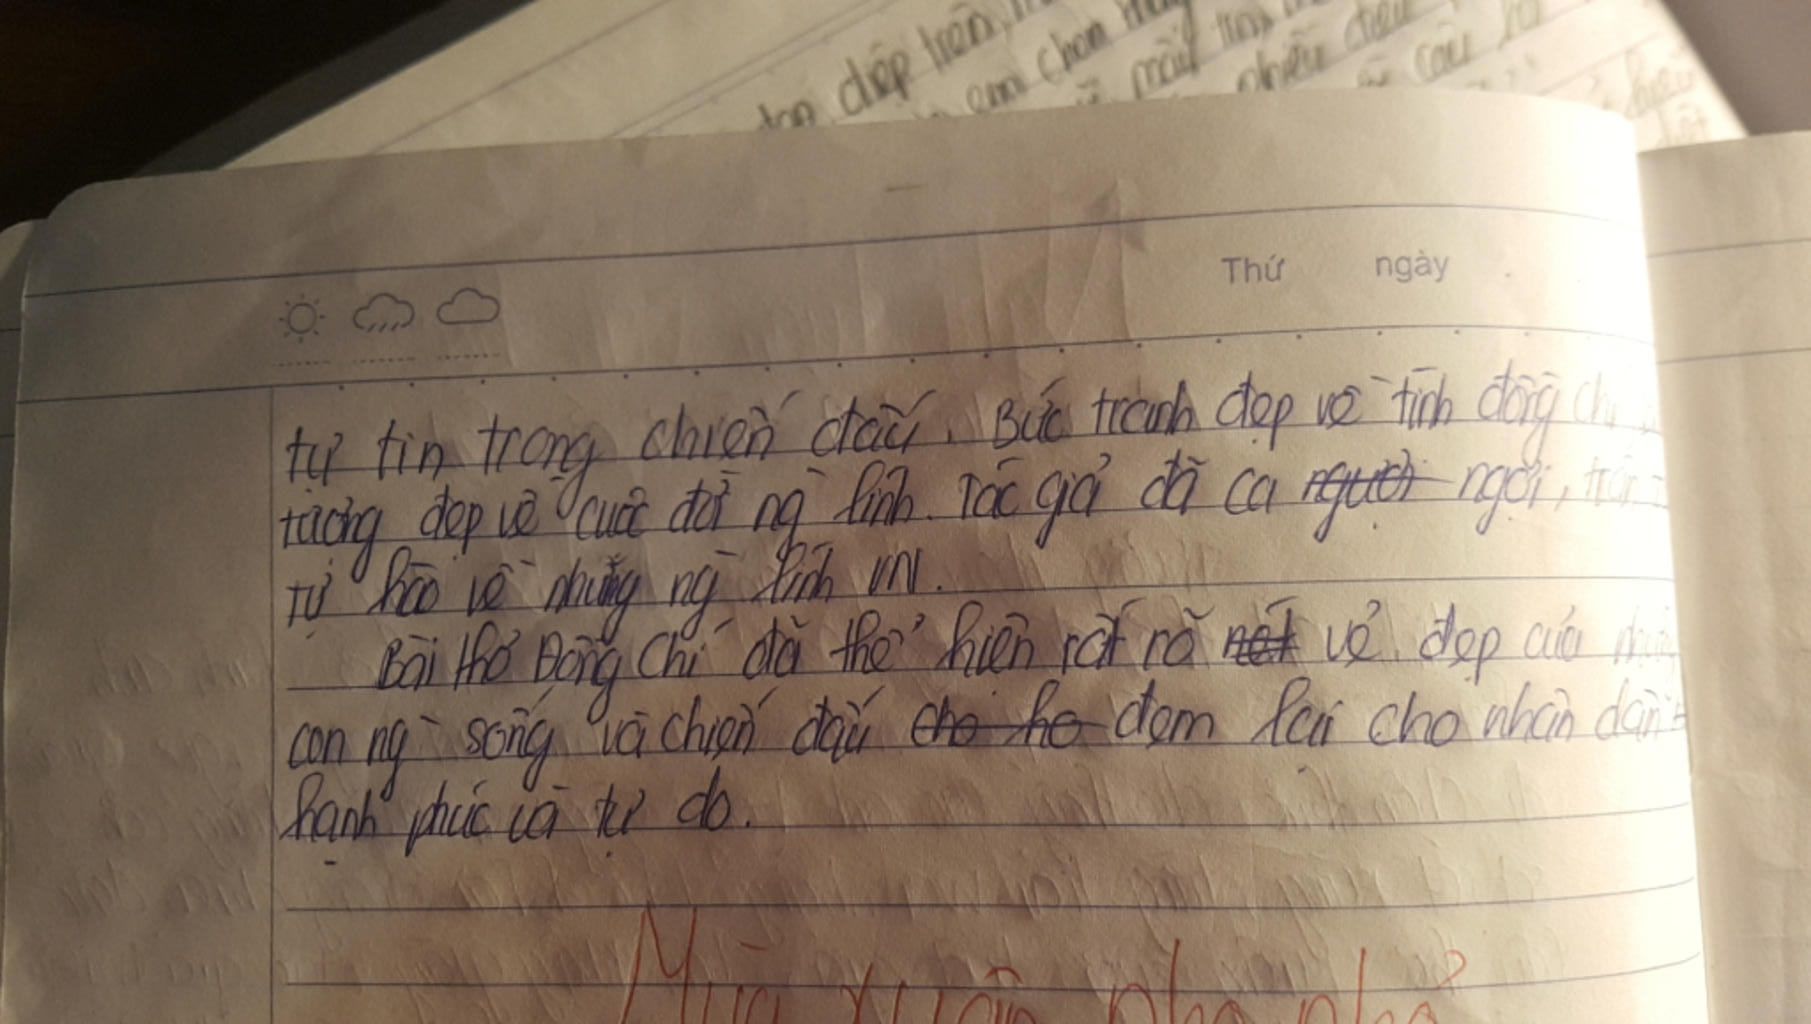 đẹp trên
em chọn
nhiều điều
câu
Thứ ngày
tự tin trong chiến đấu. Bức tranh đẹp về tình đồng chí
tượng đẹp về cuộc đời ng` lính. Tác giả đã ca người ngợi, trân
tự hào về những ng` lính
Bài thơ Đồng Chí đã thể hiện rất rõ nét vẻ đẹp của
con ng` sống và chiến đấu cho họ đem lại cho nhân dân
hạnh phúc và tự do.
Mùa xuân nho nhỏ